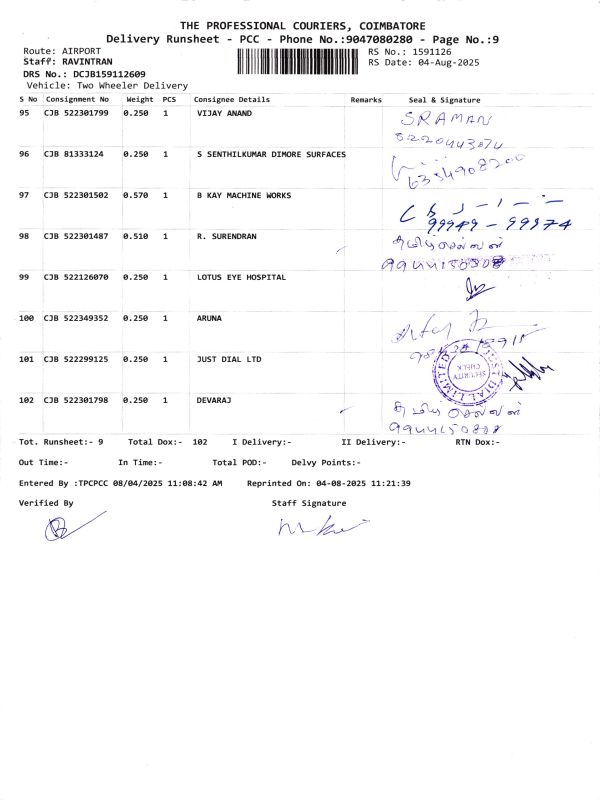 THE PROFESSIONAL COURIERS, COIMBATORE
Delivery Runsheet - PCC - Phone No.:9047080280 - Page No.:9
Route: AIRPORT RS No.: 1591126
Staff: RAVINTRAN RS Date: 04-Aug-2025
DRS No.: DCJB159112609
Vehicle: Two Wheeler Delivery
S No Consignment No Weight PCS Consignee Details Remarks Seal & Signature
95 CJB 522301799 0.250 1 VIJAY ANAND SRAMAN
96 CJB 81333124 0.250 1 S SENTHILKUMAR DIMORE SURFACES
97 CJB 522301502 0.570 1 B KAY MACHINE WORKS
99949-99974
98 CJB 522301487 0.510 1 R. SURENDRAN
99 CJB 522126070 0.250 1 LOTUS EYE HOSPITAL
100 CJB 522349352 0.250 1 ARUNA
101 CJB 522299125 0.250 1 JUST DIAL LTD JUST DIAL LIMITED SECURITY CHECK
102 CJB 522301798 0.250 1 DEVARAJ
Tot. Runsheet:- 9 Total Dox:- 102 I Delivery:- II Delivery:- RTN Dox:-
Out Time:- In Time:- Total POD:- Delvy Points:-
Entered By :TPCPCC 08/04/2025 11:08:42 AM Reprinted On: 04-08-2025 11:21:39
Verified By Staff Signature